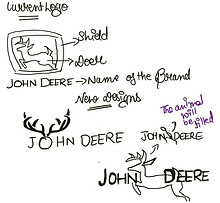 Current Logo
Shield
Deere
JOHN DEERE → Name of the Brand
New Designs
JOHN DEERE
JOHN DEERE
The animal will be filled
JOHN DEERE